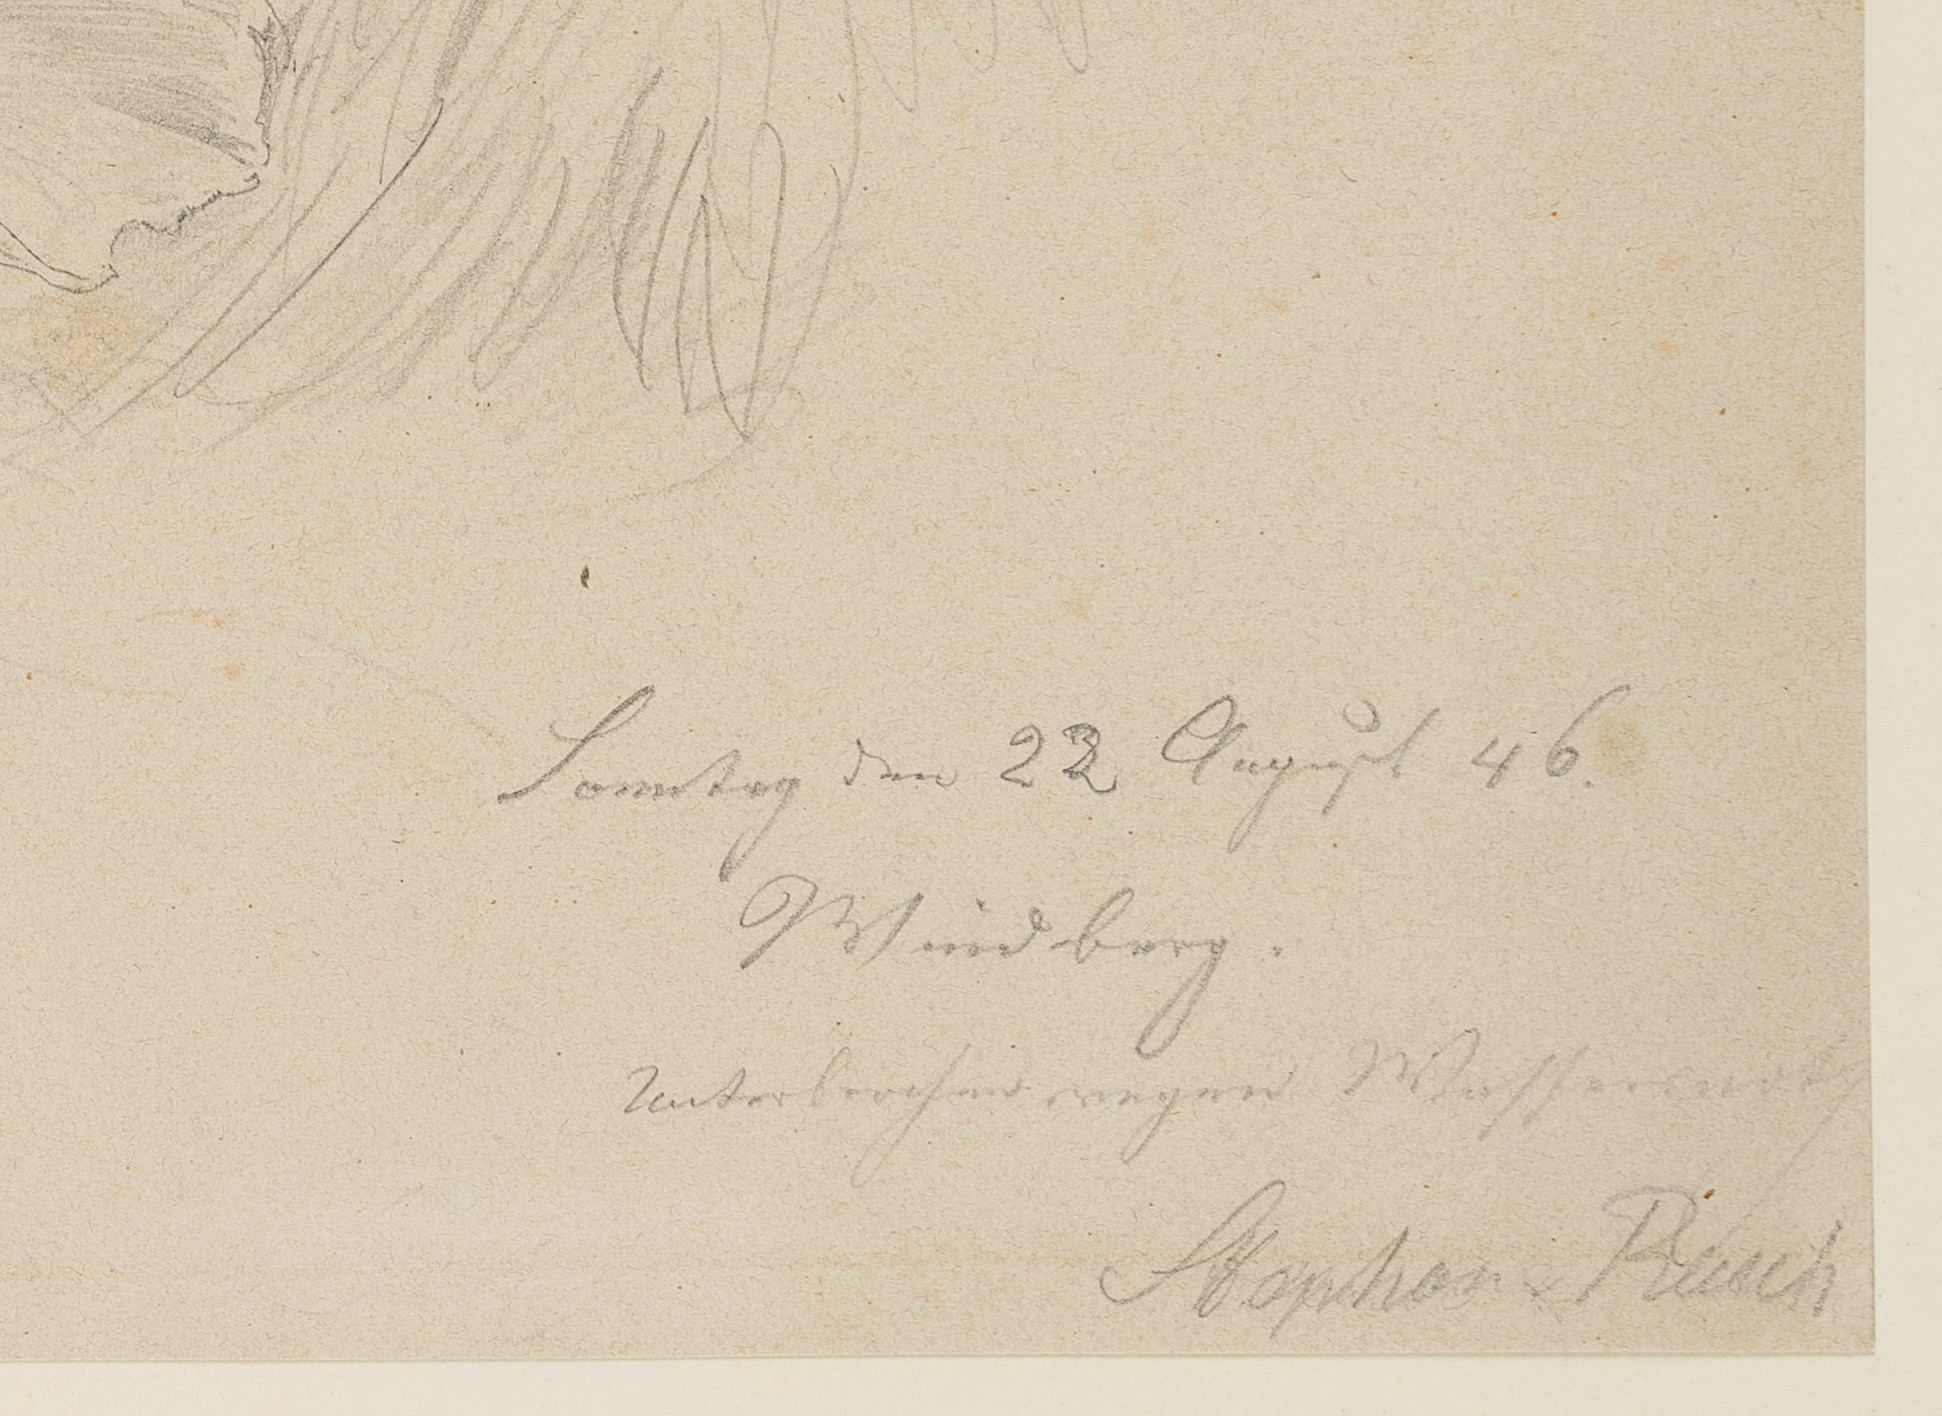 Sonntag den 22 August 46.
Windberg.
Unterbrochen wegen Wassersnoth
Stephan Reusch